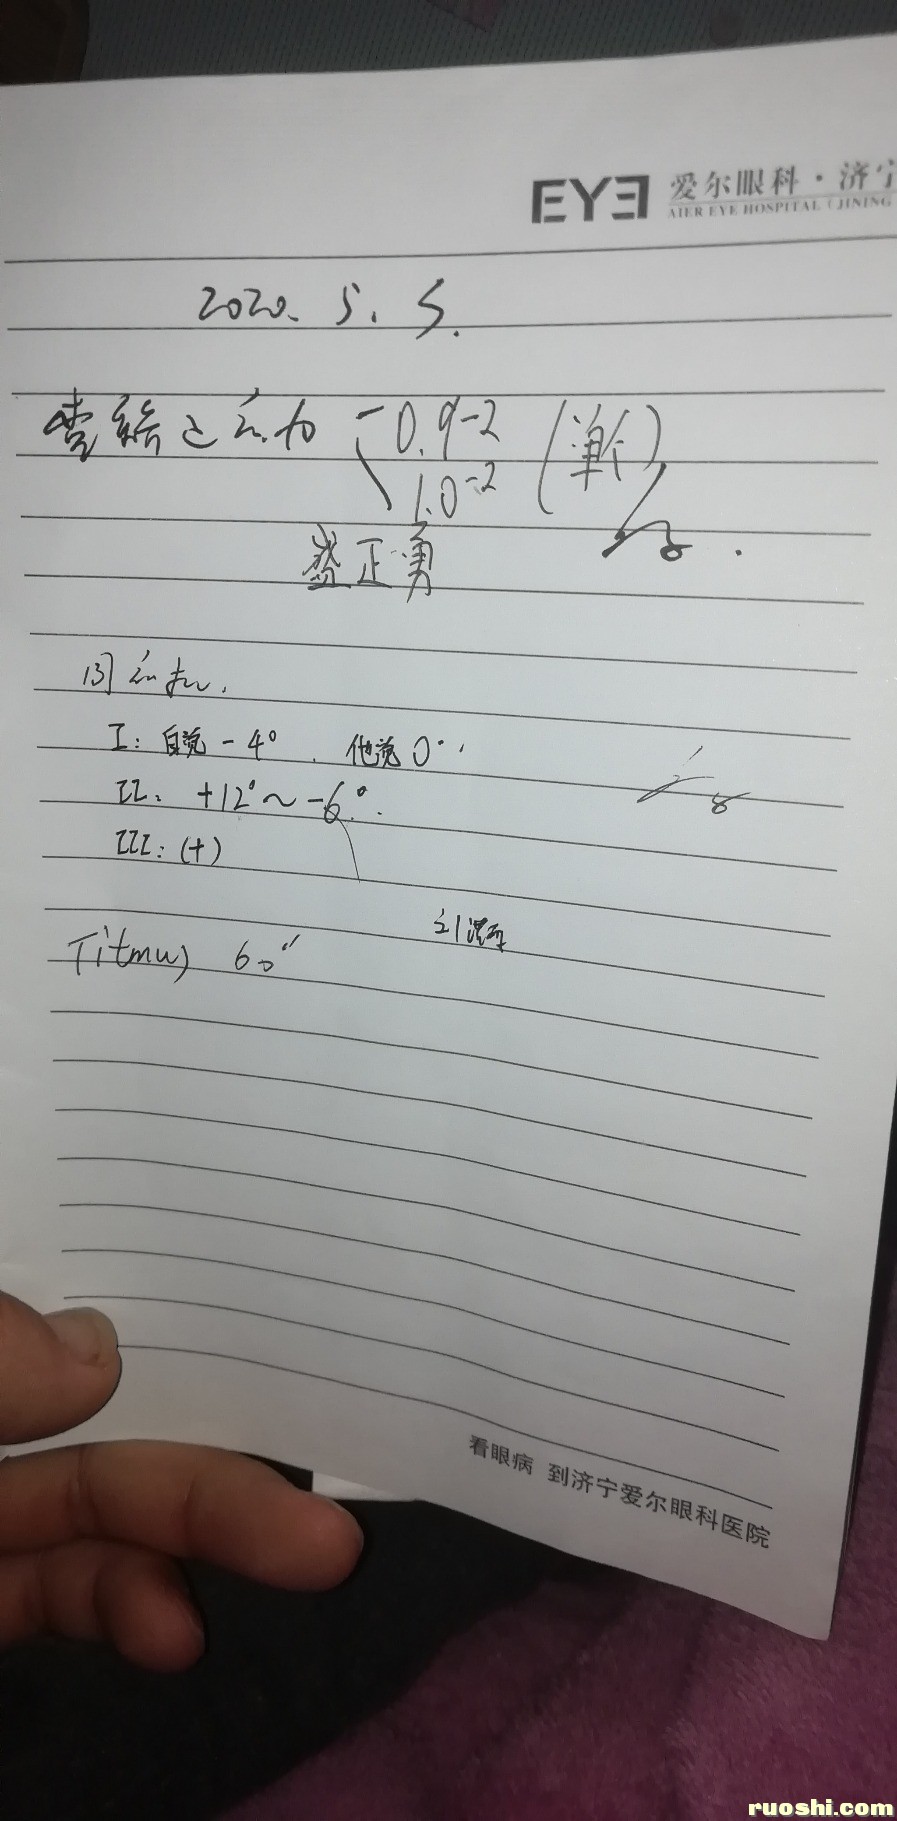 EYE 爱尔眼科·济宁
AIER EYE HOSPITAL (JINING
2020. 5. 5.
查 视力 0.9-2 (单个)
1.0-2
盛正勇
同视机.
I: 自觉 -4° . 他觉 0°
II: +12°~-6°.
III: (+)
Titmus 60″
看眼病 到济宁爱尔眼科医院
ruoshi.com